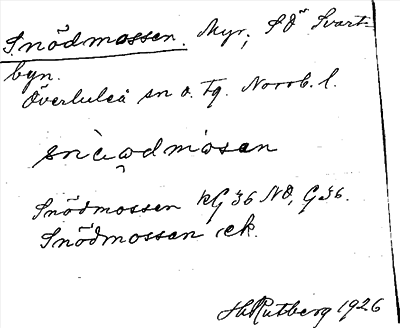 Snödmossen. Myr, SÖ Svart-
byn.
Överluleå sn o. tg. Norrb. l.
snöödmosen
Snödmossen KG 36 NO, G 36.
Snödmossen ek.
H Rutberg 1926